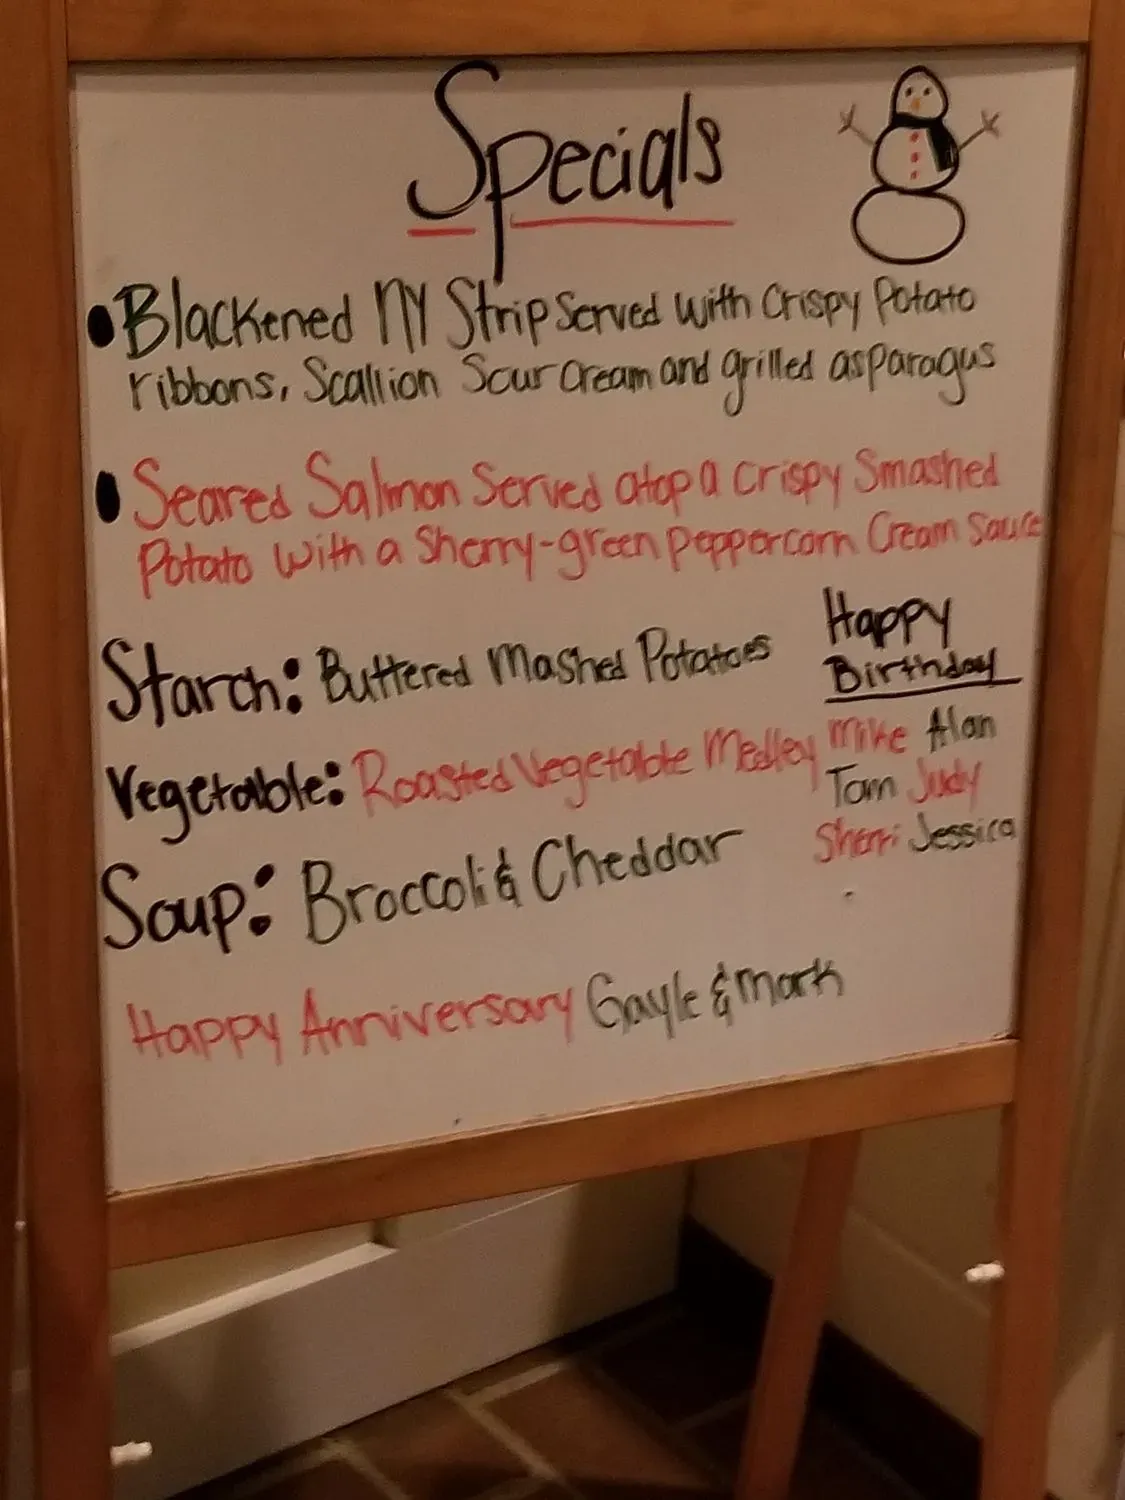 Specials
Blackened NY Strip Served with Crispy Potato
ribbons, Scallion Sour Cream and grilled asparagus
Seared Salmon Served atop a crispy Smashed
Potato with a Sherry-green peppercorn Cream Sauce
Starch: Buttered Mashed Potatoes
Vegetable: Roasted Vegetable Medley
Soup: Broccoli & Cheddar
Happy
Birthday
Mike Alan
Tom Judy
Sherri Jessica
Happy Anniversary Gayle & Mark